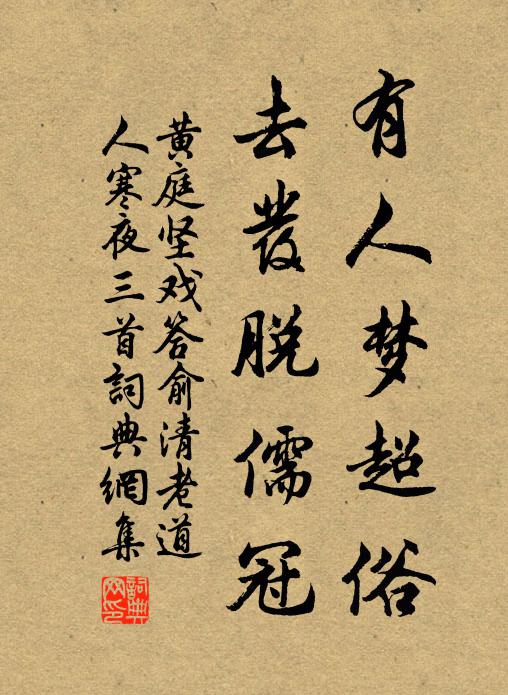 有人梦超俗
去發脱儒冠
黄庭坚戏答俞清老道
人寒夜三首詞典網集
詞典
网印